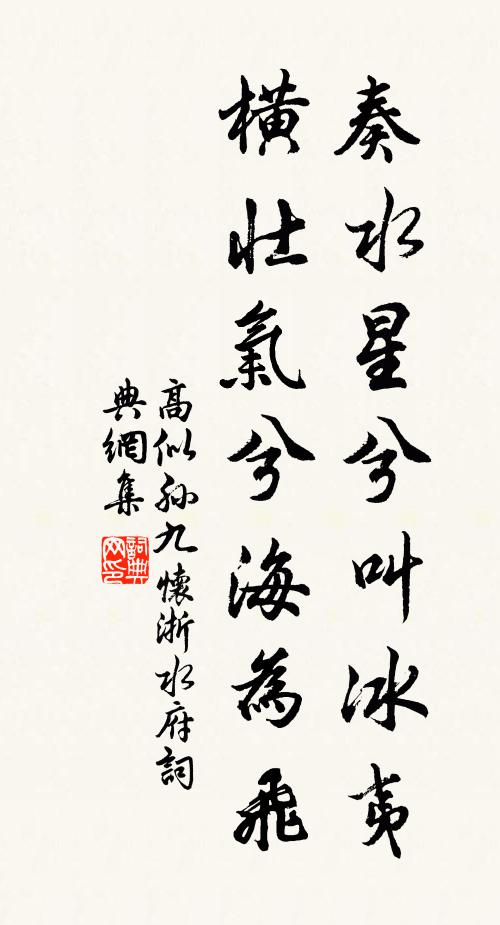 奏水星兮叫冰夷
橫壯氣兮海為飛
高似孫九懷浙水府詞
典網集
詞典網印